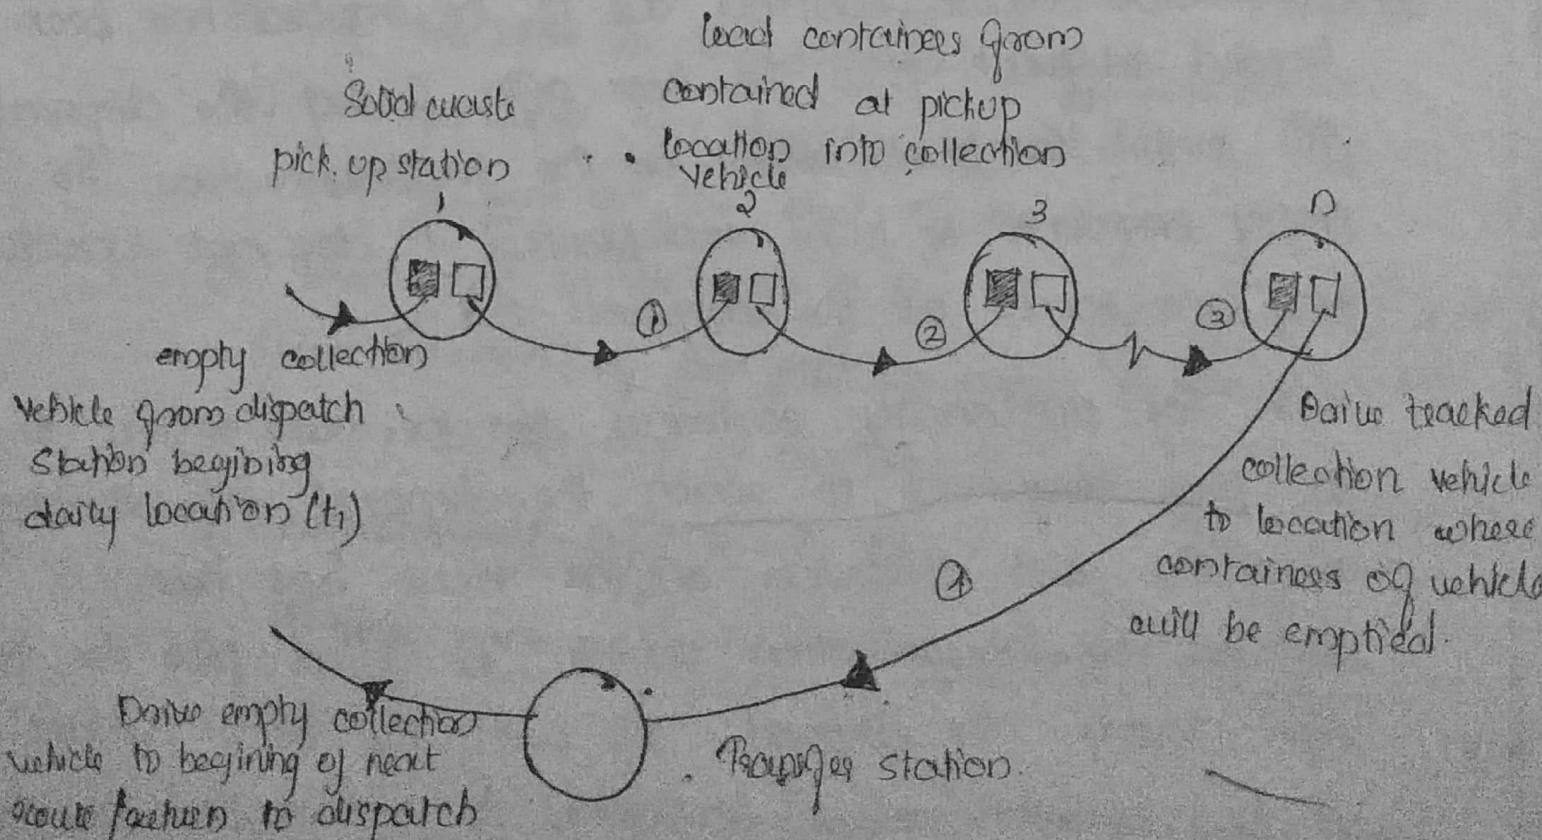 Solid waste
pick up station
load containees from
contained at pickup
location into collection
vehicle
1
2
3
n
①
②
③
empty collection
vehicle from dispatch
station begining
daily location (t₁)
Drive teacked
collection vehicle
to location where
containees of vehicle
will be emptied.
④
Drive empty collection
vehicle to begining of next
route /return to dispatch
Transfer station.